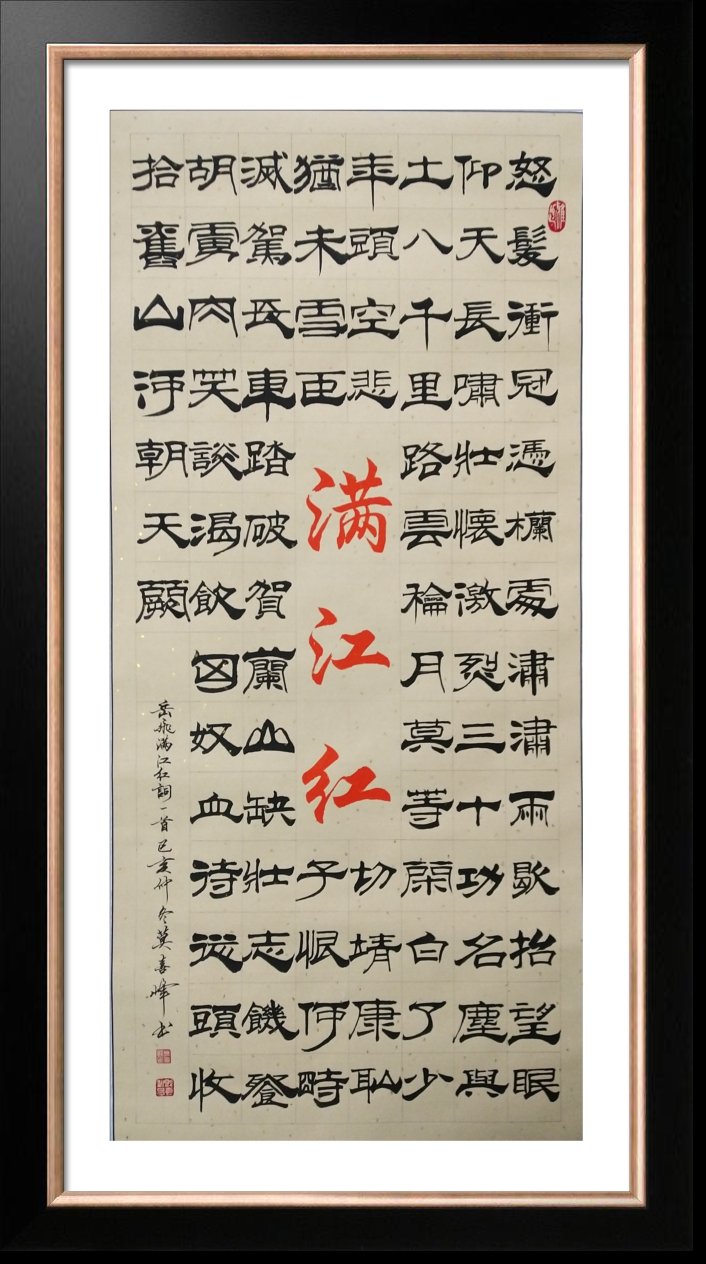 怒髮衝冠憑欄處潚潚雨歇抬望眼
仰天長嘯壯懷激烈三十功名塵與
土八千里路雲和月莫等閑白了少
年頭空悲切靖康恥
猶未雪臣子恨何時
满江红
滅駕長車踏破賀蘭山缺壯志饑登
胡虜肉笑談渴飲匈奴血待從頭收
拾舊山河朝天闕
岳飛满江红詞一首己亥仲冬莫喜峰书